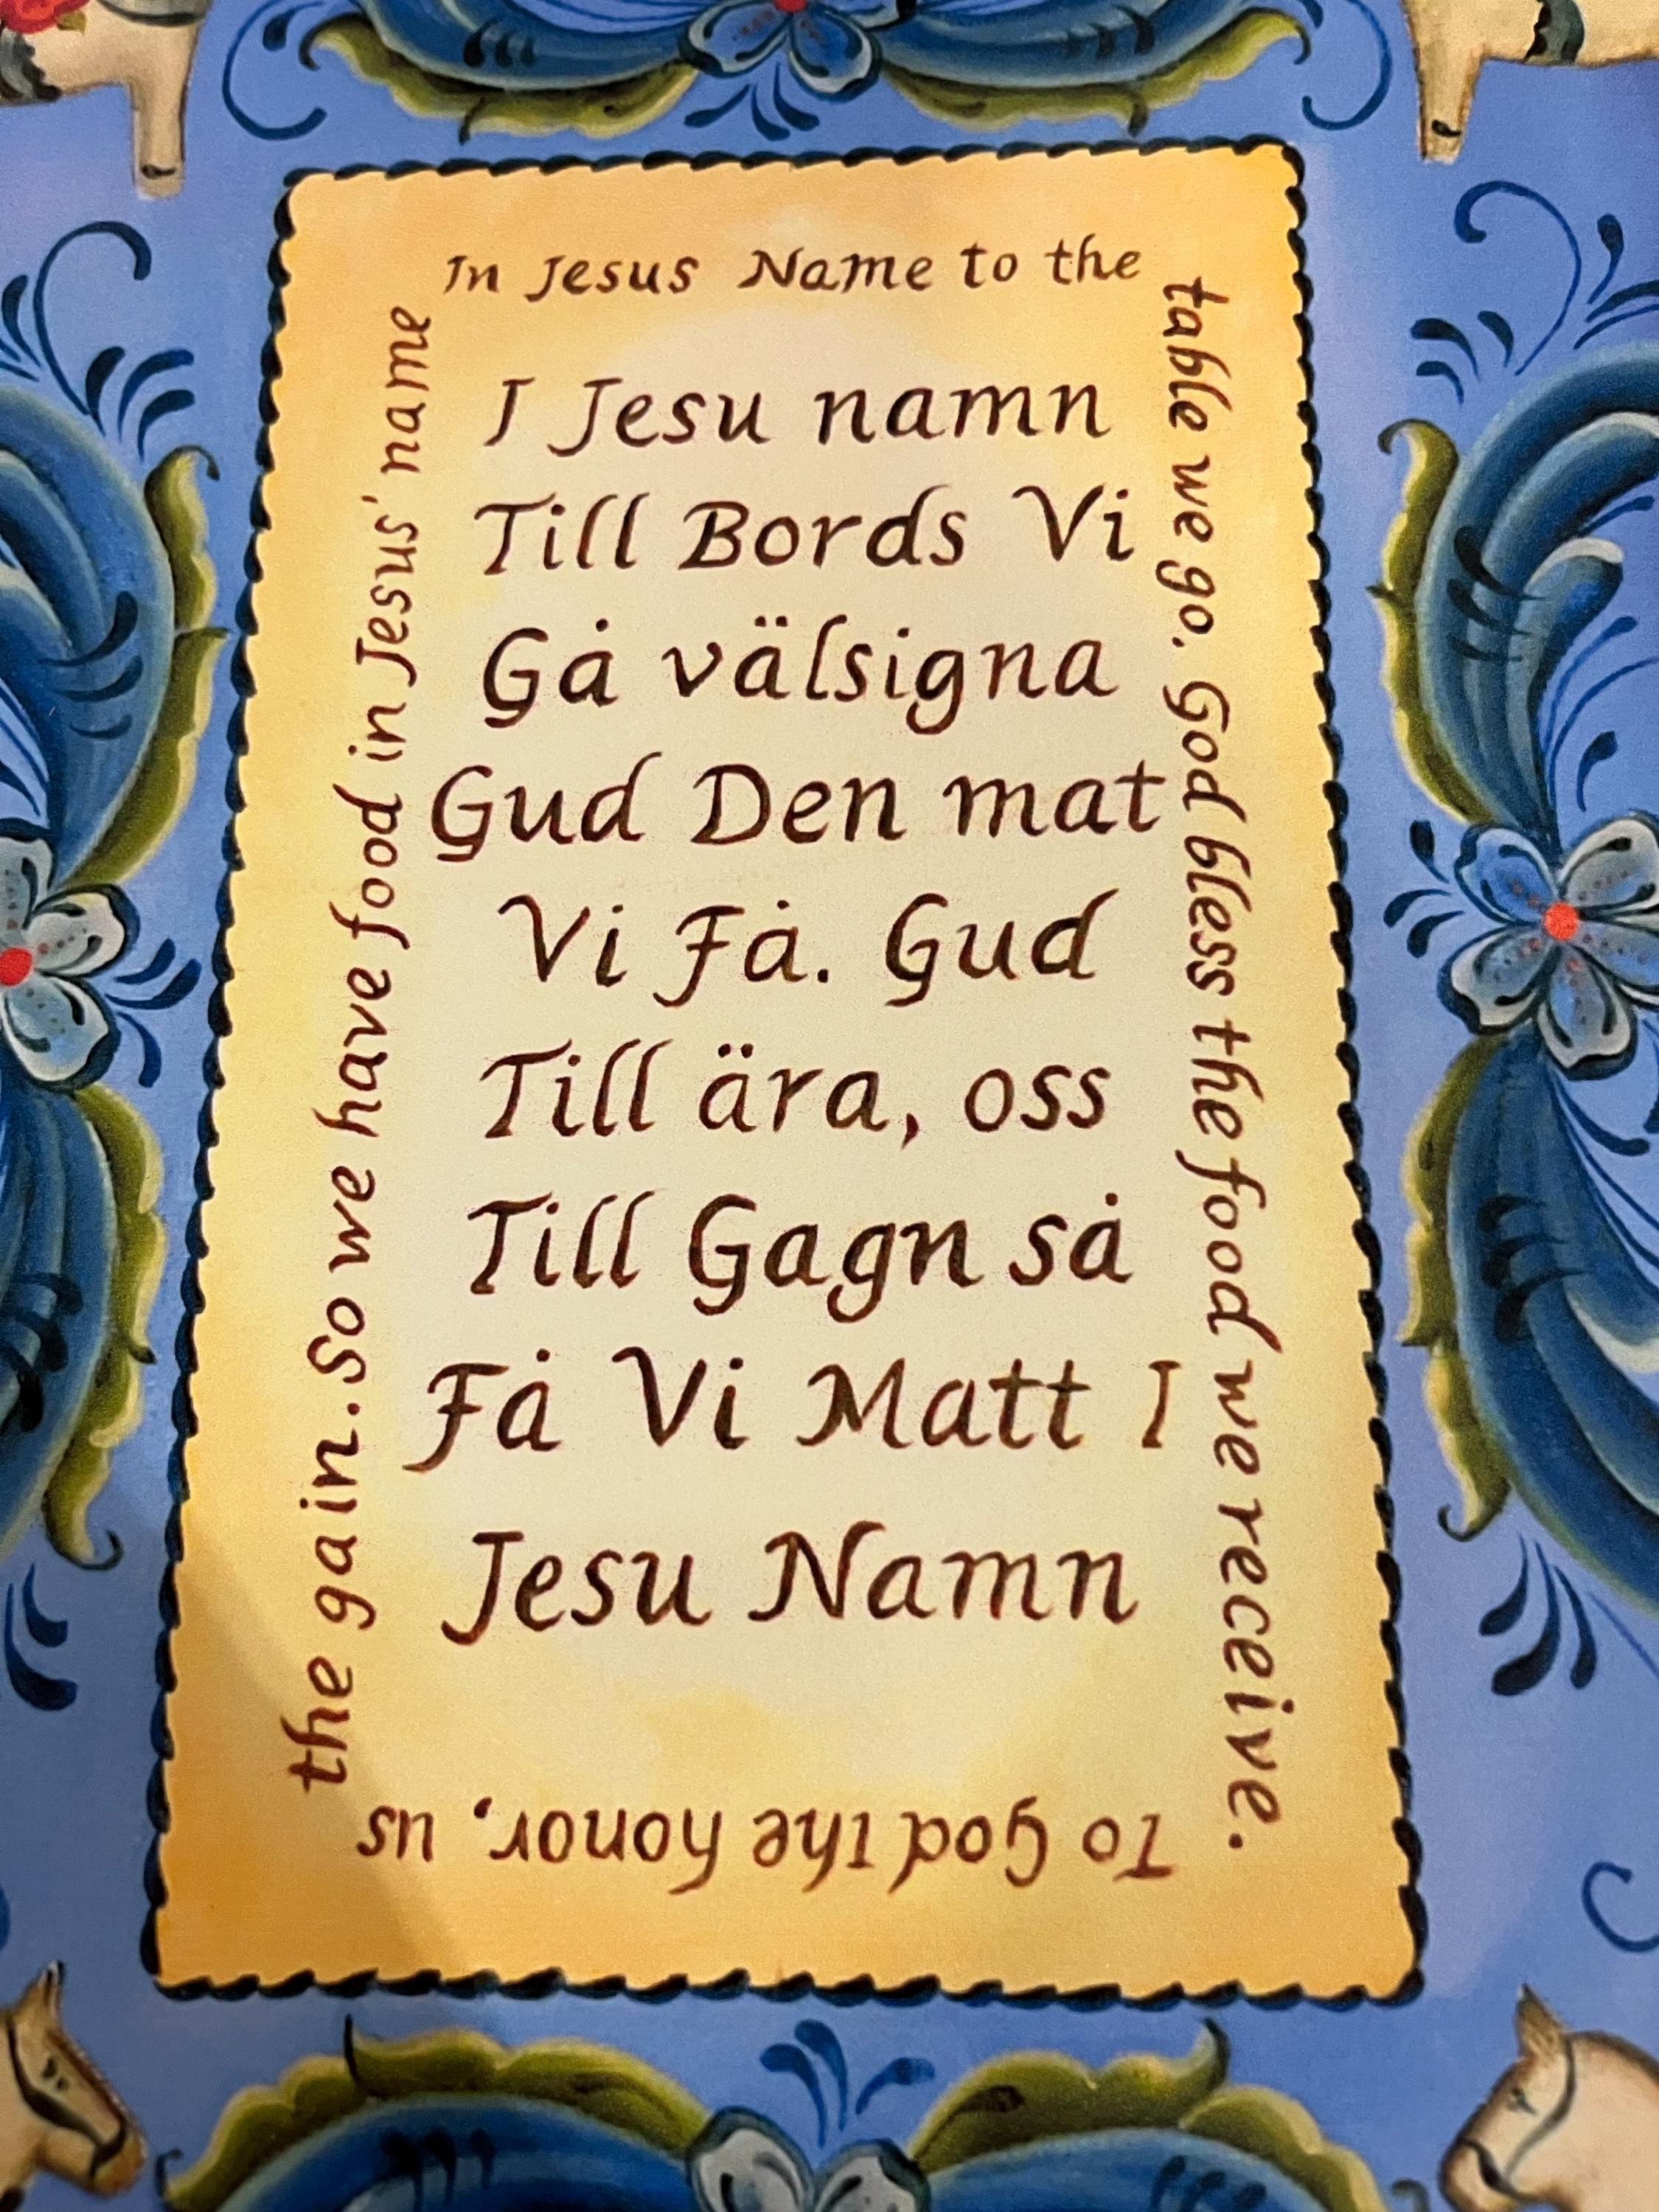 In Jesus Name to the
table we go. God bless the food we receive.
To God the honor, us
the gain. So we have food in Jesus' name
I Jesu namn
Till Bords Vi
Gå välsigna
Gud Den mat
Vi Få. Gud
Till ära, oss
Till Gagn så
Få Vi Matt I
Jesu Namn